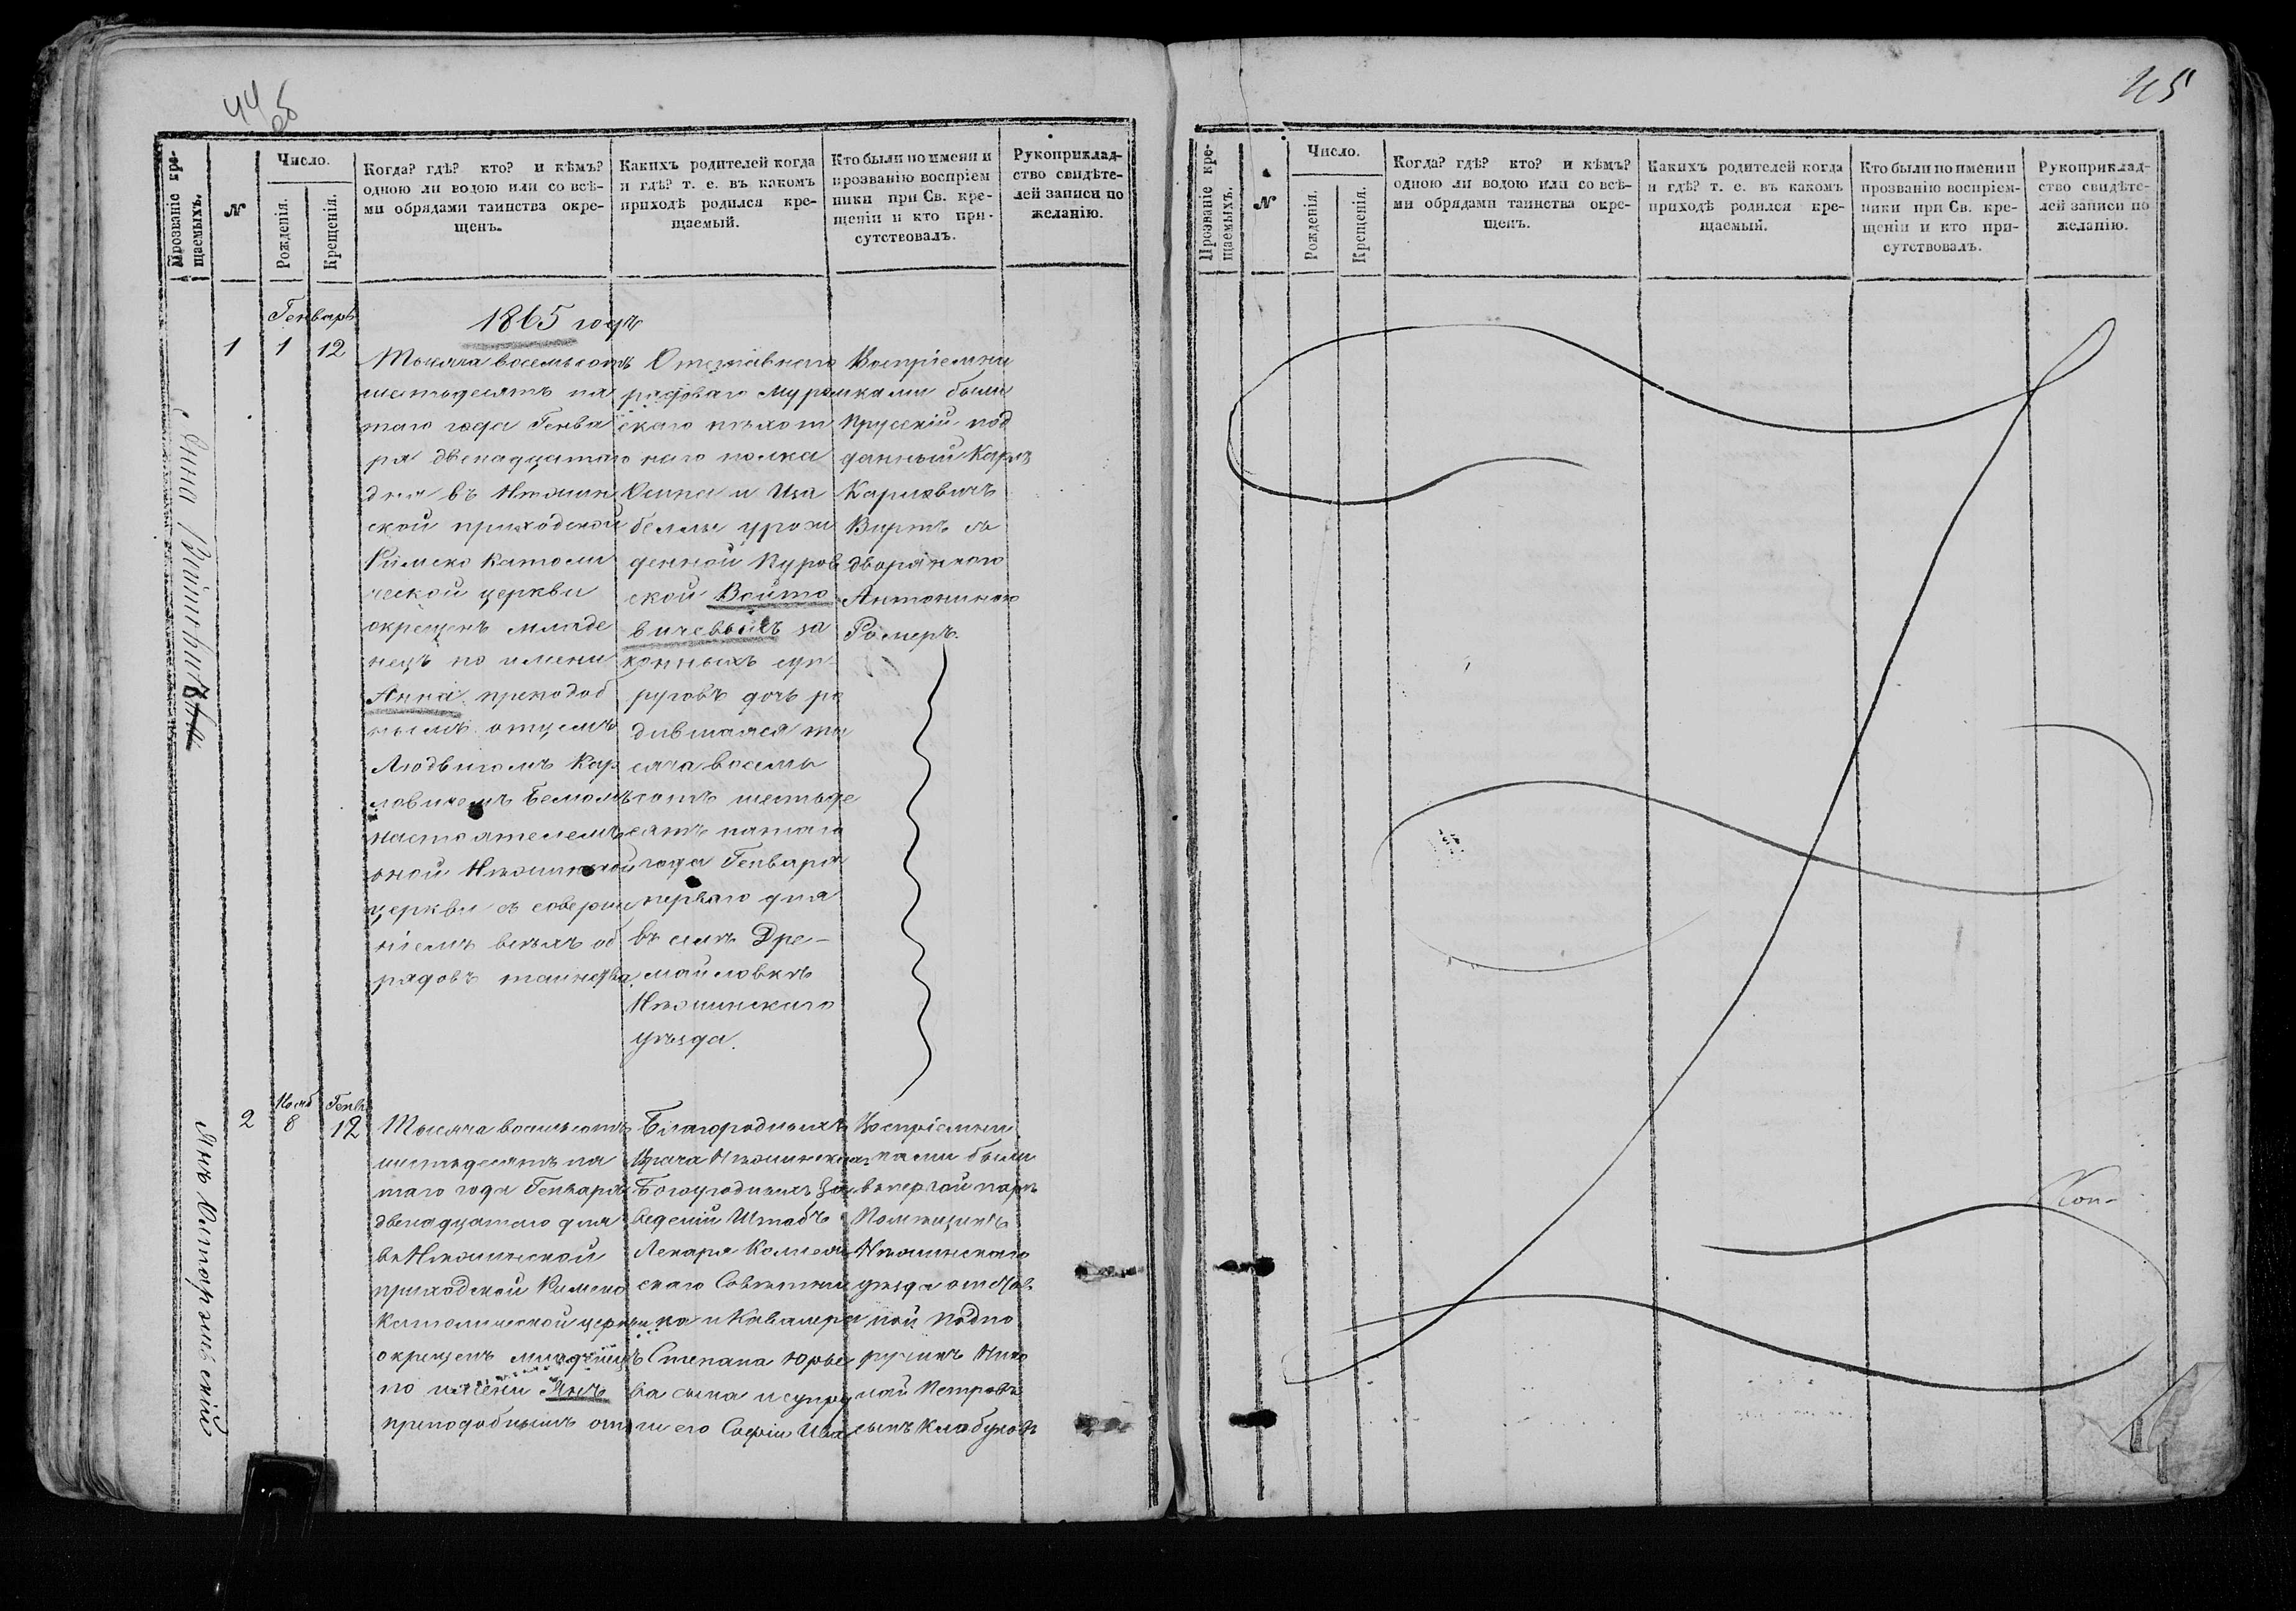 44
об
Прозваніе кре-
щаемыхъ.
№
Число.
Рожденія.
Крещенія.
Когда? гдѣ? кто? и кѣмъ?
одною ли водою или со всѣ-
ми обрядами таинства окре-
щенъ.
Какихъ родителей когда
и гдѣ? т. е. въ какомъ
приходѣ родился кре-
щаемый.
Кто были по имени и
прозванію воспріем
ники при Св. кре-
щеніи и кто при-
сутствовалъ.
Рукоприклад-
ство свидѣте-
лей записи по
желанію.
Генварь
1865 годъ
1
1
12
Анна
Тысяча восемьсотъ
шестьдесятъ пя
таго года Генва
ря двенадцатаго
дня въ Нѣжин
ской приходской
Римско Католи
ческой церкви
окрещенъ младе
нецъ по имени
Анна преподоб
нымъ отцемъ
Людвигомъ Кар
ловичемъ
настоятелемъ
оной Нѣжинской
церкви съ соверше
ніемъ всѣхъ об
рядовъ таинства.
Отставнаго
рядоваго Муром
скаго пѣхот
наго полка
Осипа и Иза
беллы урож
денной Куров
ской Войто
вичевыхъ за
конныхъ суп-
руговъ дочь ро
дившаяся ты
сяча восемь
сотъ шестьде
сятъ пятаго
года Генваря
перваго дня
въ селѣ Дре-
майловкѣ
Нѣжинскаго
уѣзда.
Воспріемни
ками были
Прусскій под
данный Карлъ
Карловичъ
Виртъ съ
дворянкою
Антониною
Ромеръ.
2
Нояб
8
Генв.
12
Янъ
Тысяча восемьсотъ
шестьдесятъ пя
таго года Генваря
двенадцатаго дня
въ Нѣжинской
приходской Римско
Католической церкви
окрещенъ младенецъ
по имени Янъ
преподобнымъ отц
Благородныхъ
Врача Нѣжинскихъ
Богоугодныхъ За
веденій Штабъ
Лекаря Коллеж
скаго Совѣтни
ка и Кавалера
Степана Юрье
ва сына и супру
ги его Софіи Ива
Воспріемни
ками были
въ первой парѣ
Помѣщикъ
Нѣжинскаго
уѣзда отстав
ной Подпо
ручикъ Нико
лай Петровъ
сынъ Клабуковъ
45
Прозваніе кре-
щаемыхъ.
№
Число.
Рожденія.
Крещенія.
Когда? гдѣ? кто? и кѣмъ?
одною ли водою или со всѣ-
ми обрядами таинства окре-
щенъ.
Какихъ родителей когда
и гдѣ? т. е. въ какомъ
приходѣ родился кре-
щаемый.
Кто были по имени и
прозванію воспріем-
ники при Св. кре-
щеніи и кто при-
сутствовалъ.
Рукоприклад-
ство свидѣте-
лей записи по
желанію.